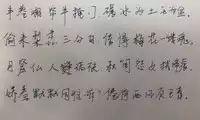 半卷湘帘半掩门,碾冰为土玉为盆。
偷来梨蕊三分白,借得梅花一缕魂。
月窟仙人缝缟袂,秋闺怨女拭啼痕。
娇羞默默同谁诉?倦倚西风夜已昏。